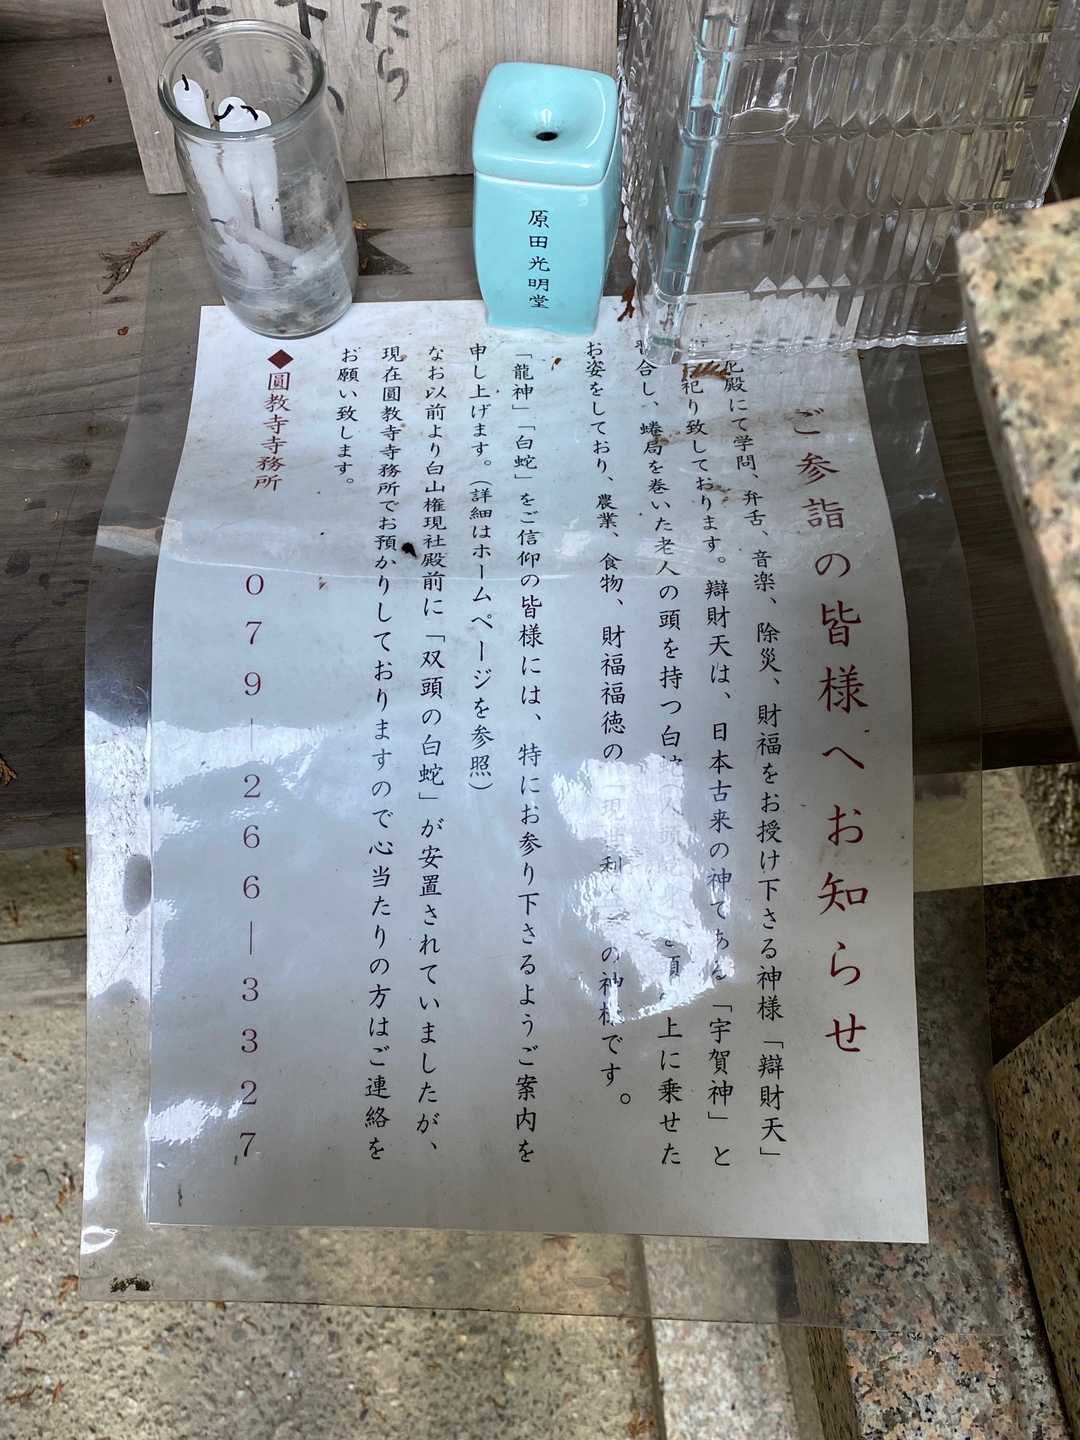 たら
下
原田光明堂
ご参詣の皆様へお知らせ
殿にて学問、弁舌、音楽、除災、財福をお授け下さる神様「辯財天」
祀り致しております。辯財天は、日本古来の神である「宇賀神」と
習合し、蜷局を巻いた老人の頭を持つ白 上に乗せた
お姿をしており、農業、食物、財福福徳の の神様です。
「龍神」「白蛇」をご信仰の皆様には、特にお参り下さるようご案内を
申し上げます。(詳細はホームページを参照)
なお以前より白山権現社殿前に「双頭の白蛇」が安置されていましたが、
現在圓教寺寺務所でお預かりしておりますので心当たりの方はご連絡を
お願い致します。
◆圓教寺寺務所 079-266-3327